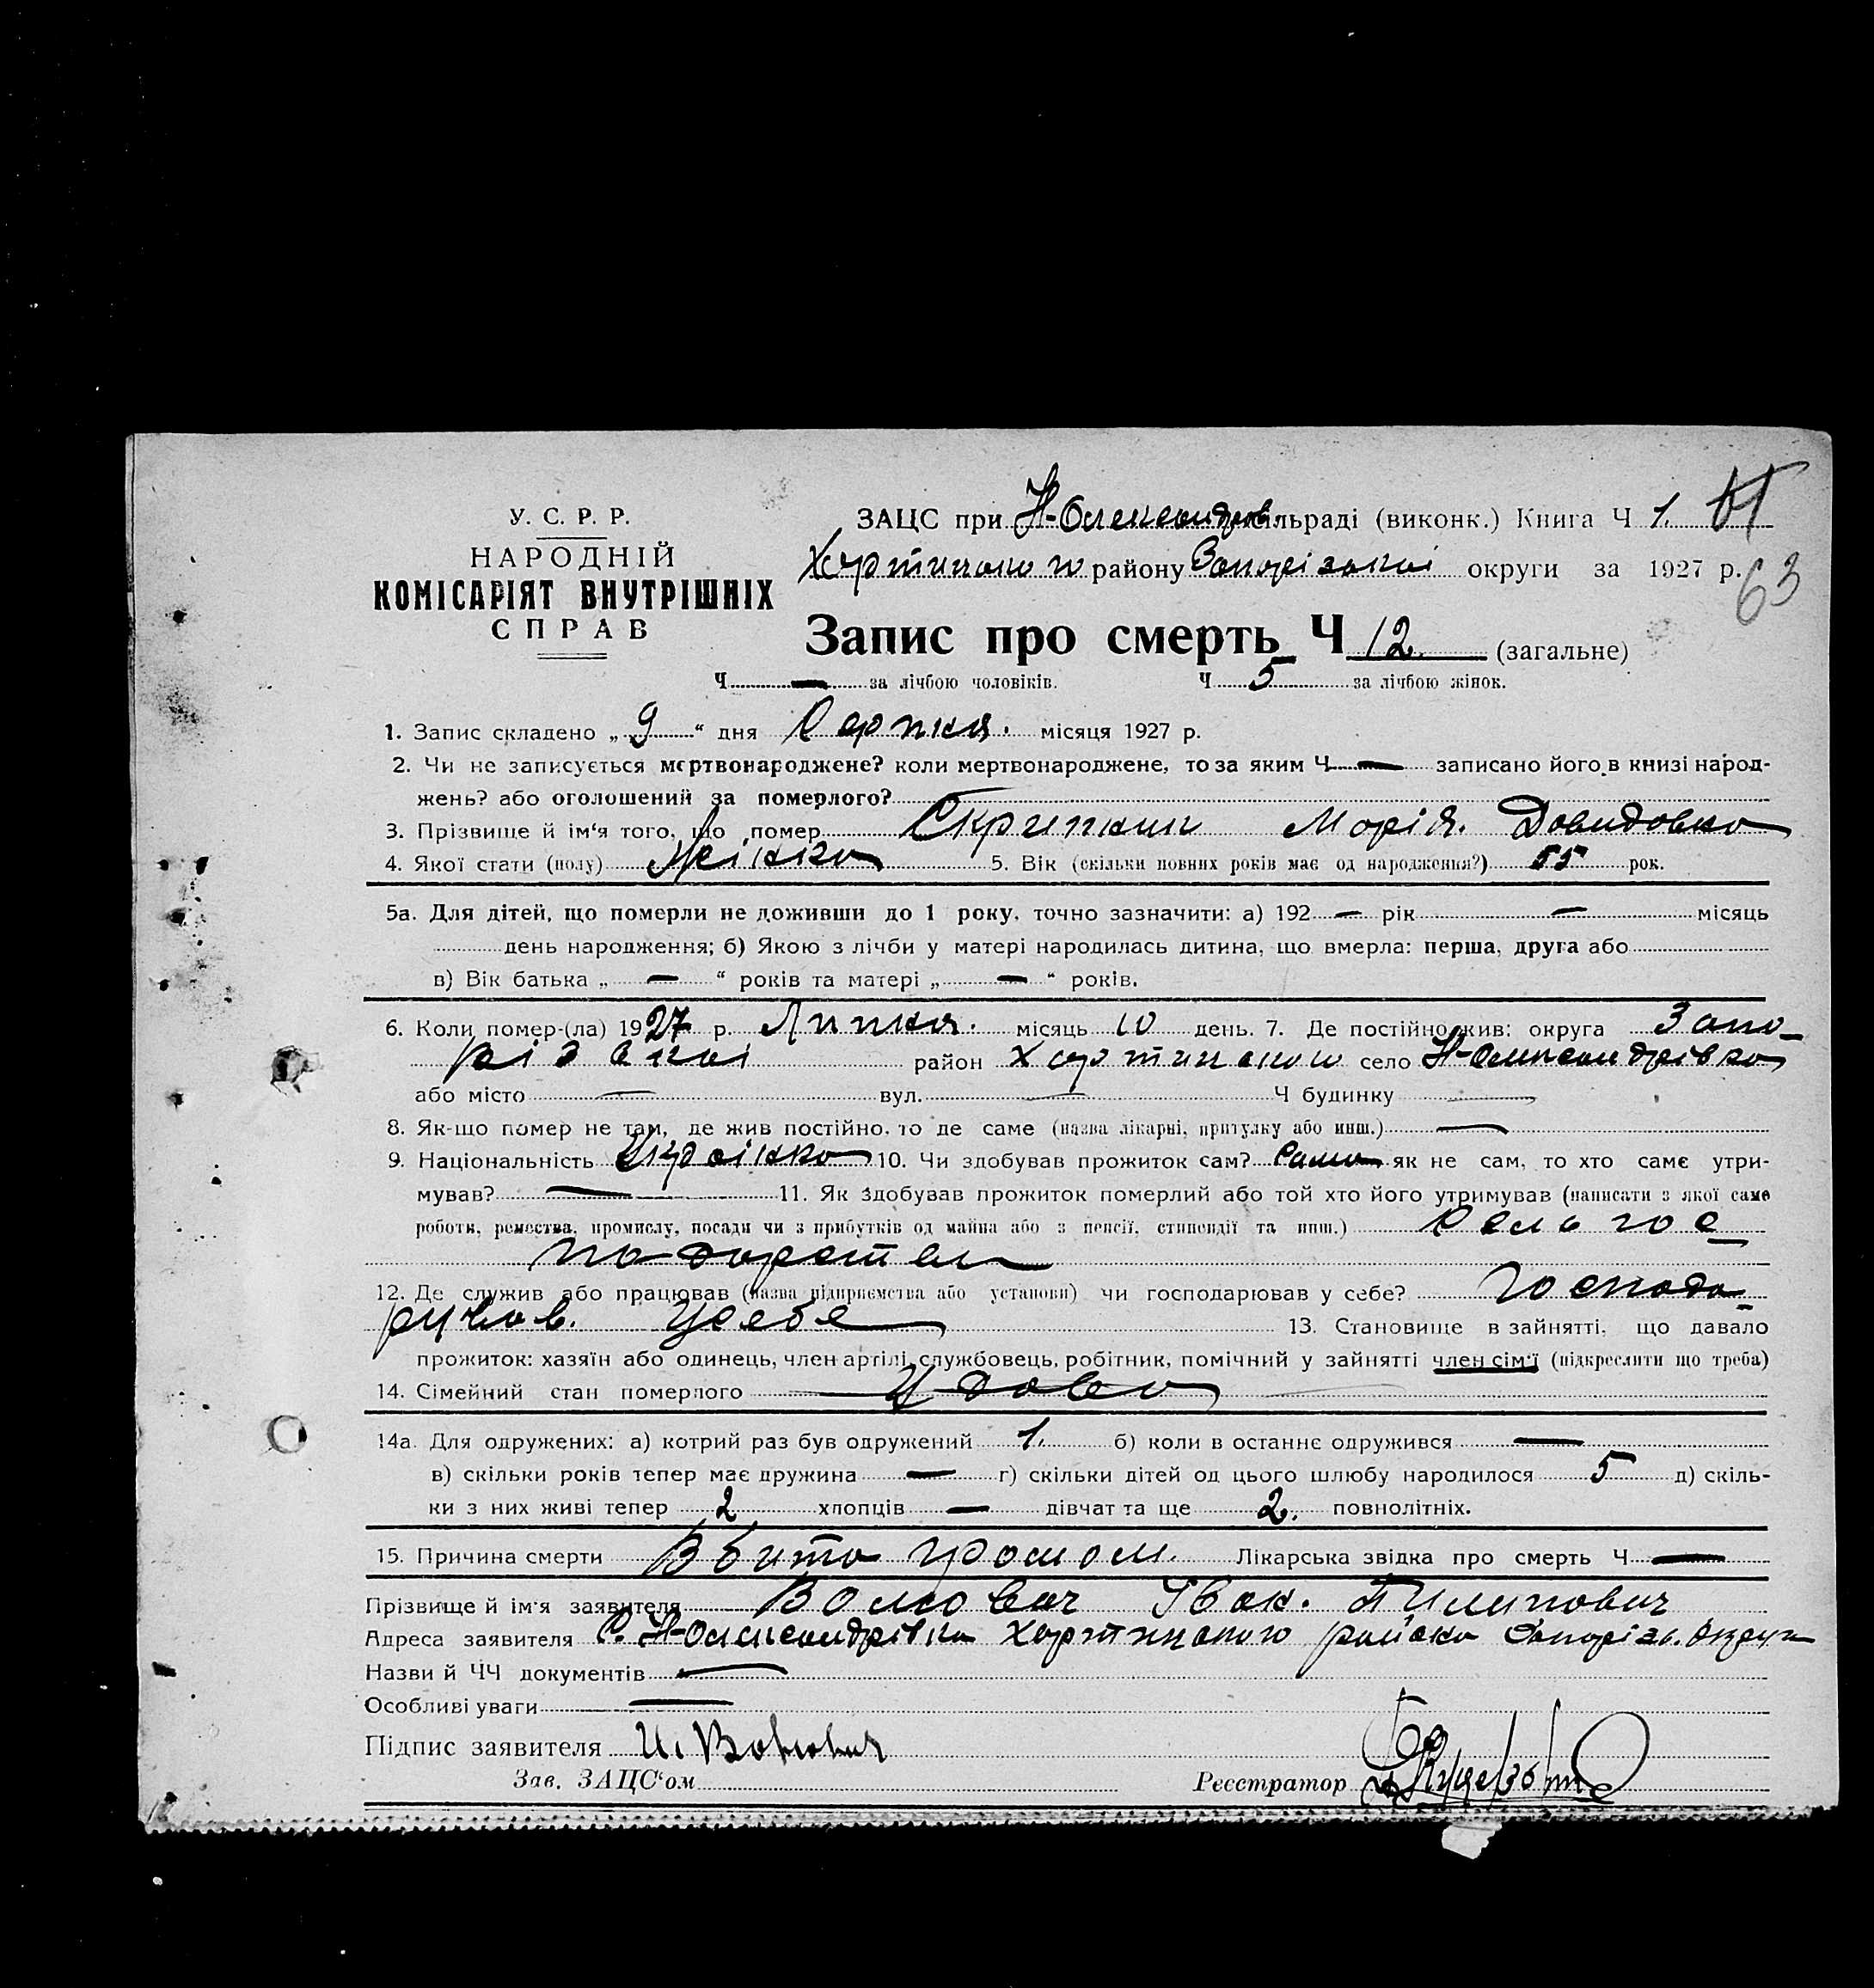 У. С. Р. Р.
НАРОДНІЙ
КОМІСАРІЯТ ВНУТРІШНІХ
СПРАВ
ЗАЦС при Н-Олександрів. сільраді (виконк.) Книга Ч 1.
Хортицького району Запорізької округи за 1927 р.
63
Запис про смерть Ч 12. (загальне)
Ч — за лічбою чоловіків. Ч 5 за лічбою жінок.
1. Запис складено „ 9 “ дня Серпня. місяця 1927 р.
2. Чи не записується мертвонароджене? коли мертвонароджене, то за яким Ч — записано його в книзі народ-
жень? або оголошений за померлого?
3. Прізвище й ім‘я того, що помер Скрипник Марія. Давидовна
4. Якої стати (полу) Жінка 5. Вік (скільки повних років має од народження?) 55 рок.
5а. Для дітей, що померли не доживши до 1 року, точно зазначити: а) 192 — рік — місяць
день народження; б) Якою з лічби у матері народилась дитина, що вмерла: перша, друга або
в) Вік батька „ — “ років та матері „ — “ років.
6. Коли помер-(ла) 1927 р. Липня. місяць 10 день. 7. Де постійно жив: округа Запо-
різської район Хортицького село Н-Олександрівка
або місто — вул. — Ч будинку —
8. Як-що помер не там, де жив постійно, то де саме (назва лікарні, притулку або инш.) —
9. Національність Українка 10. Чи здобував прожиток сам? Сама як не сам, то хто саме утри-
мував? — 11. Як здобував прожиток померлий або той хто його утримував (написати з якої саме
роботи, ремества, промислу, посади чи з прибутків од майна або з пенсії, стипендії та инш.) Сельгос
12. Де служив або працював (назва підприємства або установи) чи господарював у себе? Господа-
рював. у себе 13. Становище в зайнятті, що давало
прожиток: хазяїн або одинець, член артілі, службовець, робітник, помічний у зайнятті член сім‘ї (підкреслити що треба)
14. Сімейний стан померлого Удова
14а. Для одружених: а) котрий раз був одружений 1. б) коли в останнє одружився —
в) скільки років тепер має дружина — г) скільки дітей од цього шлюбу народилося 5 д) скіль-
ки з них живі тепер 2 хлопців — дівчат та ще 2. повнолітніх.
15. Причина смерти Вбита громом. Лікарська звідка про смерть Ч —
Прізвище й ім‘я заявителя Волкович Іван. Пилипович
Адреса заявителя С. Н-Олександрівка Хортицького району Запоріз. Округи
Назви й ЧЧ документів —
Особливі уваги —
Підпис заявителя И. Волкович
Зав. ЗАЦС‘ом Реєстратор